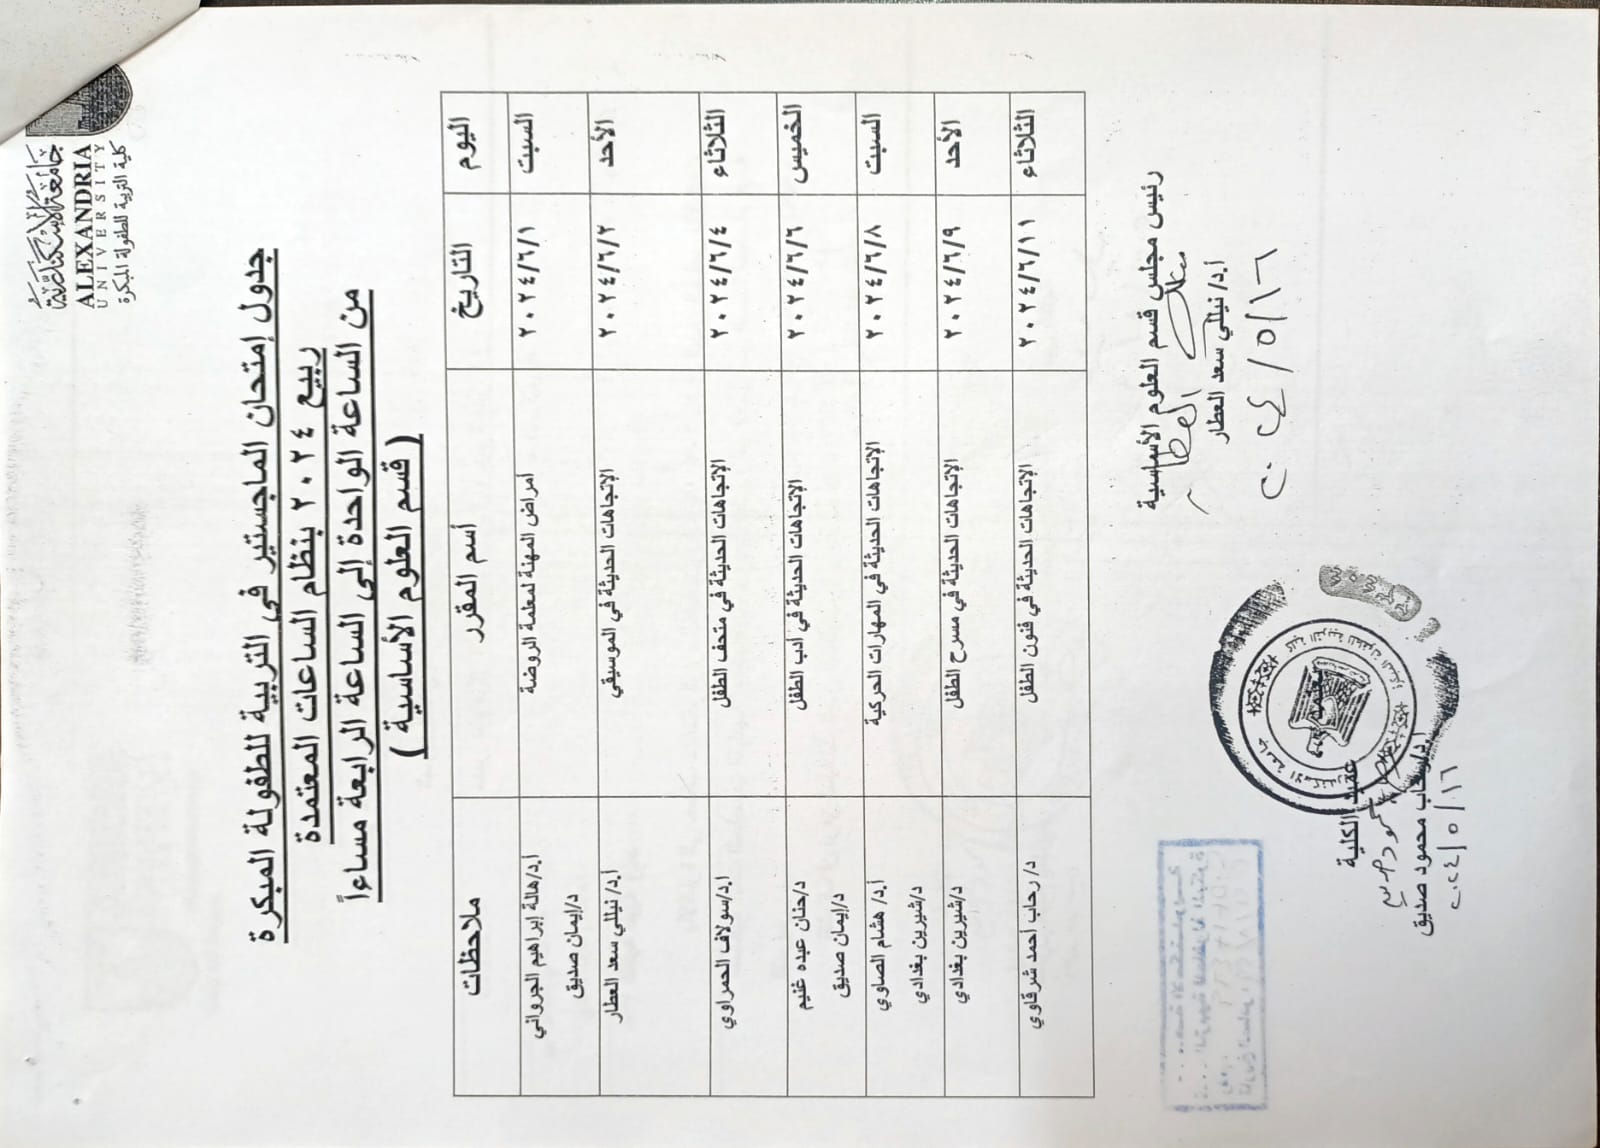 جامعة الإسكندرية
ALEXANDRIA
UNIVERSITY
كلية التربية للطفولة المبكرة
جدول إمتحان الماجستير في التربية للطفولة المبكرة
ربيع ٢٠٢٤ بنظام الساعات المعتمدة
من الساعة الواحدة إلى الساعة الرابعة مساءاً
( قسم العلوم الأساسية )
اليوم التاريخ أسم المقرر ملاحظات
السبت ٢٠٢٤/٦/١ أمراض المهنة لمعلمة الروضة أ.د/هالة إبراهيم الجرواني
د/إيمان صديق
الأحد ٢٠٢٤/٦/٢ الإتجاهات الحديثة في الموسيقي أ.د/ نيللي سعد العطار
الثلاثاء ٢٠٢٤/٦/٤ الإتجاهات الحديثة في متحف الطفل ا.د/سولاف الحمراوي
الخميس ٢٠٢٤/٦/٦ الإتجاهات الحديثة في أدب الطفل د/حنان عبده غنيم
د/إيمان صديق
السبت ٢٠٢٤/٦/٨ الإتجاهات الحديثة في المهارات الحركية أ.د/ هشام الصاوي
د/شيرين بغدادي
الأحد ٢٠٢٤/٦/٩ الإتجاهات الحديثة في مسرح الطفل د/شيرين بغدادي
الثلاثاء ٢٠٢٤/٦/١١ الإتجاهات الحديثة في فنون الطفل د/ رحاب أحمد شرقاوي
رئيس مجلس قسم العلوم الأساسية
أ.د/ نيللي سعد العطار
٢٠٢٤/٥/١٦
عميد الكلية
أ.د/رحاب محمود صديق
٢٠٢٤/٥/١٦